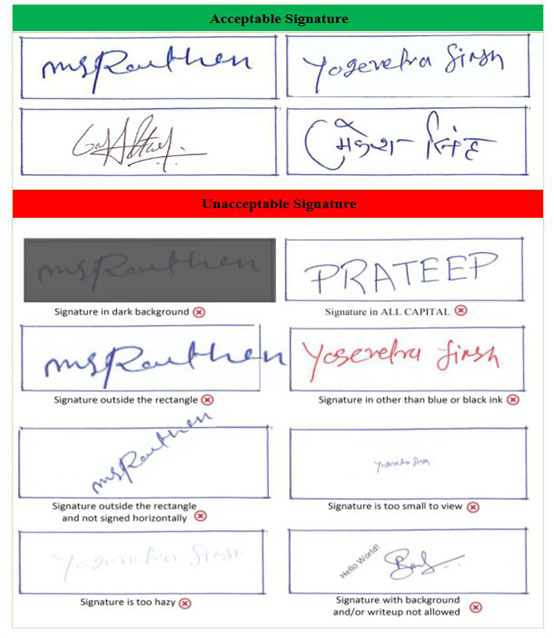 Acceptable Signature
msRauthen
Yogendra Singh
महेश सिंह
Unacceptable Signature
msRauthen
PRATEEP
Signature in dark background
Signature in ALL CAPITAL
msRauthen
Yogendra Singh
Signature outside the rectangle
Signature in other than blue or black ink
msRauthen
Yogendra Singh
Signature outside the rectangle
and not signed horizontally
Signature is too small to view
Yogendra Singh
Hello World!
Signature is too hazy
Signature with background
and/or writeup not allowed